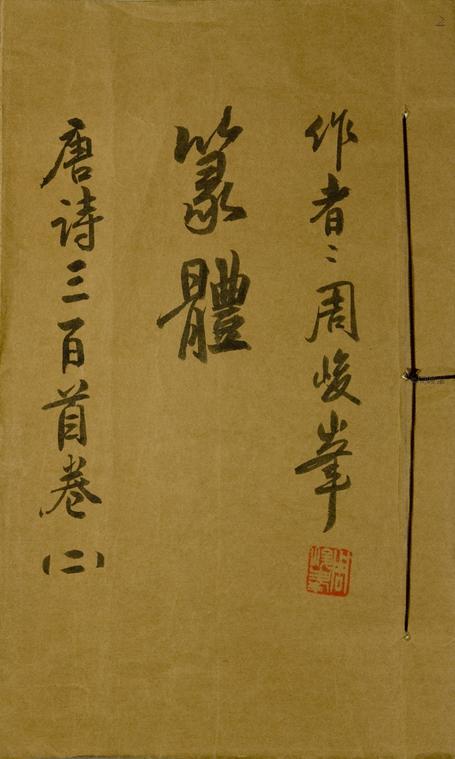 作者：周峻峯
篆體
唐詩三百首卷（二）
2